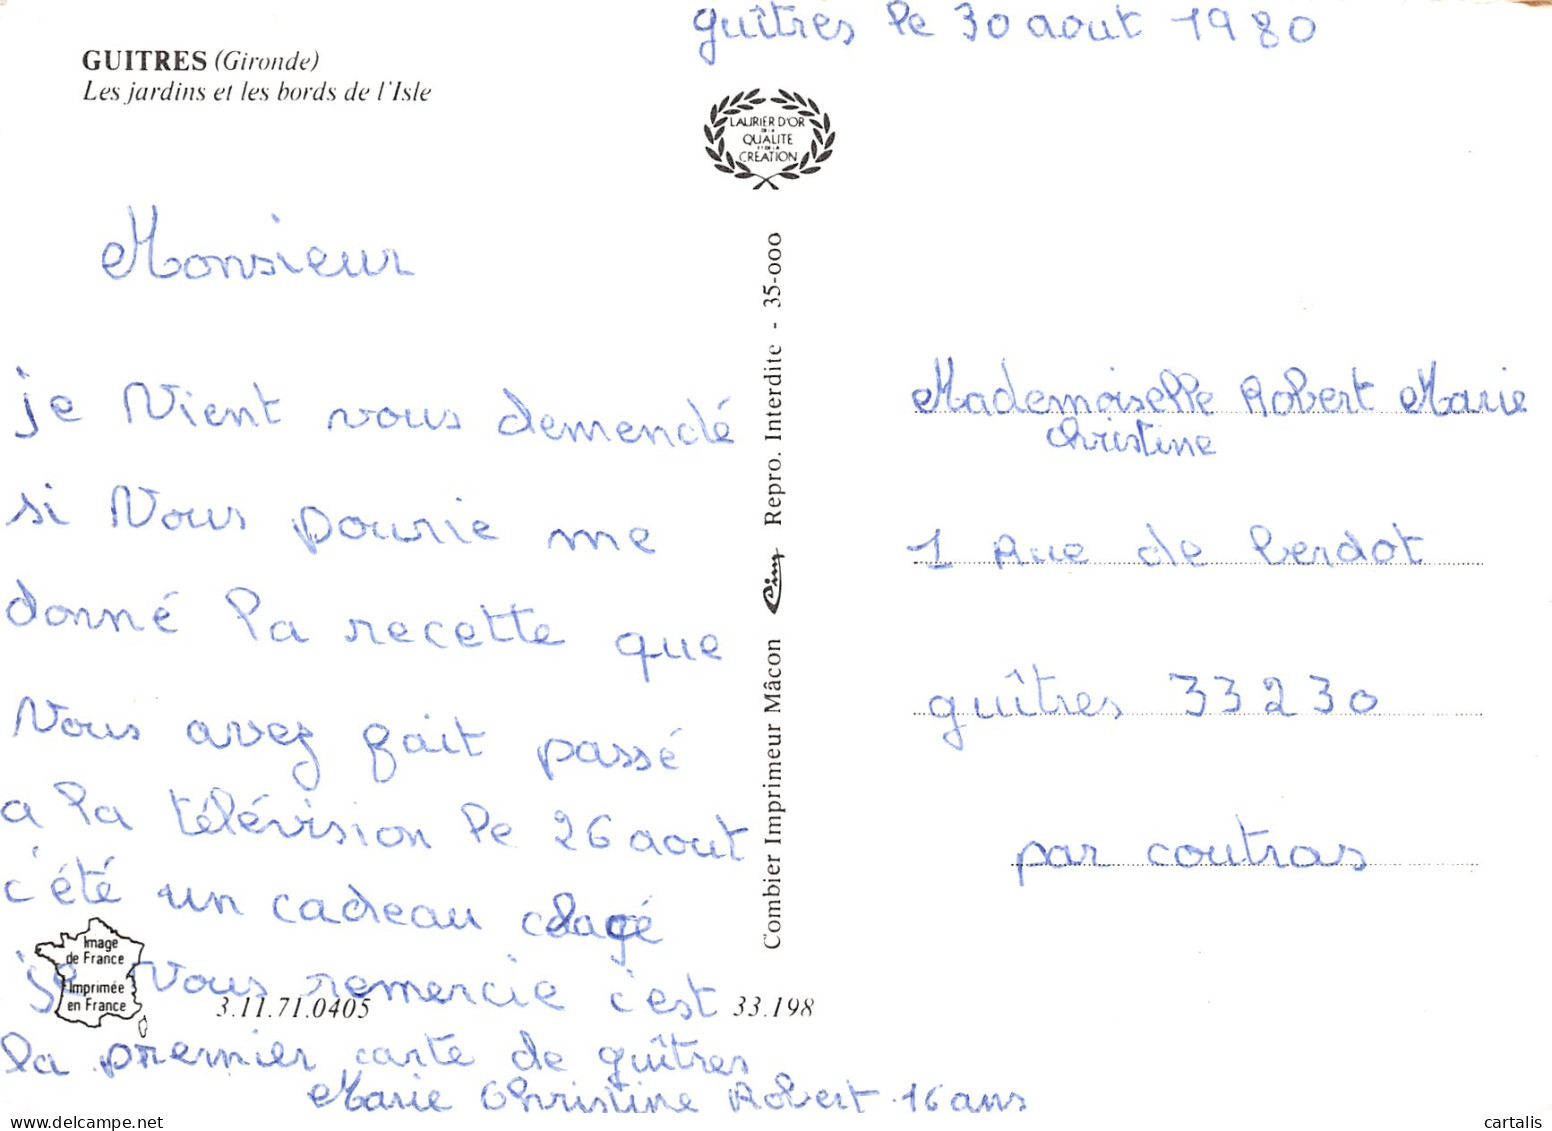 guîtres le 30 aout 1980
GUITRES (Gironde)
Les jardins et les bords de l'Isle
LAURIER D'OR
DE LA
QUALITE
ET DE LA
CRÉATION
Monsieur
je Vient vous demendé
si Vous pourie me
donné la recette que
Vous avez fait passé
a la télévision le 26 aout
c'été un cadeau glacé
je Vous remercie c'est
la premier carte de guîtres
Marie Christine Robert 16 ans
Image
de France
Imprimée
en France
3.11.71.0405
33.198
Combier Imprimeur Mâcon Cim Repro. Interdite - 35-000
Mademoiselle Robert Marie
Christine
1 Rue de berdot
guîtres 33230
par coutras
cartalis